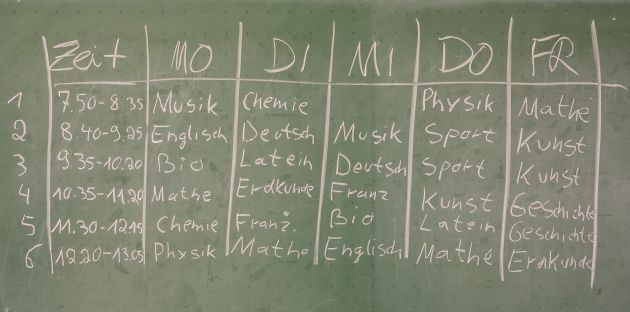 Zeit MO DI MI DO FR
1 7.50-8.35 Musik Chemie Physik Mathe
2 8.40-9.25 Englisch Deutsch Musik Sport Kunst
3 9.35-10.20 Bio Latein Deutsch Sport Kunst
4 10.35-11.20 Mathe Erdkunde Franz Kunst Geschichte
5 11.30-12.15 Chemie Franz. Bio Latein Geschichte
6 12.20-13.05 Physik Mathe Englisch Mathe Erdkunde